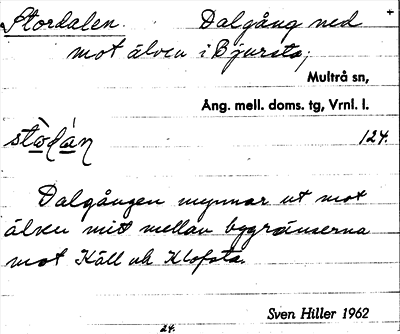 Stordalen. Dalgång ned +
mot älven i Bjursta;
Multrå sn,
Ång. mell. doms. tg, Vrnl. l.
stòdán 124.
Dalgången mynnar ut mot
älven mitt mellan bygränserna
mot Käll och Klofsta.
Sven Hiller 1962
24.